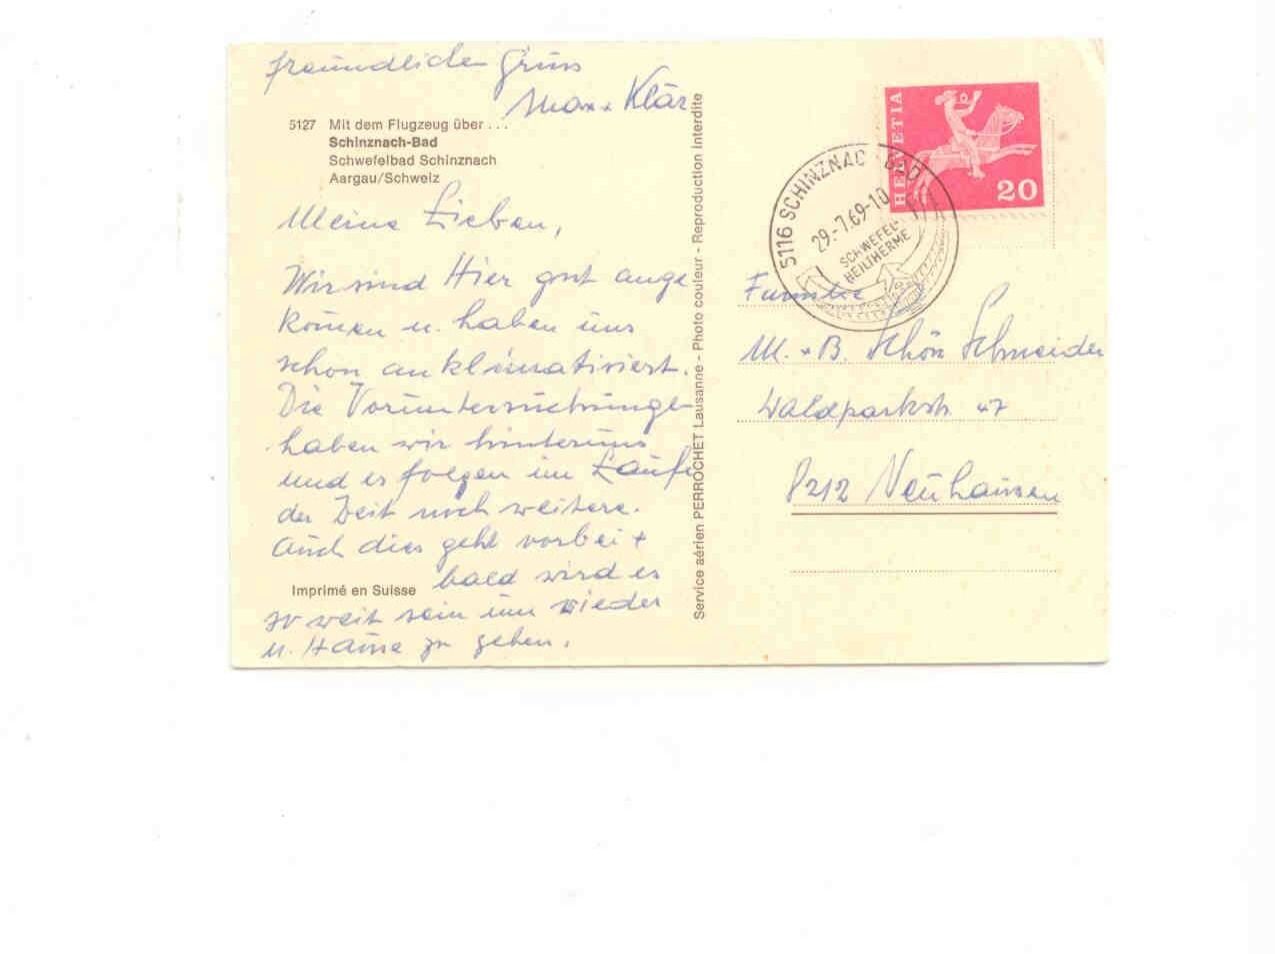 freundliche Grüss
Max + Klär
5127 Mit dem Flugzeug über . . .
Schinznach-Bad
Schwefelbad Schinznach
Aargau/Schweiz
Meine Lieben,
Wir sind Hier gut ange
komen u. haben uns
schon an klimatisiert.
Die Voruntersuchungen
haben wir hinter uns
und es folgen im Laufe
der Zeit noch weitere.
Auch dies geht vorbei +
bald wird es
Imprimé en Suisse
so weit sein um wieder
n. Hause zu gehen.
Service aérien PERROCHET Lausanne - Photo couleur - Reproduction interdite
HELVETIA
20
5116 SCHINZNACH BAD
29.-7.69-10
SCHWEFEL-
HEILTHERME
Familie
M. + B. Schön Schneider
Waldparkstr. 47
8212 Neuhausen